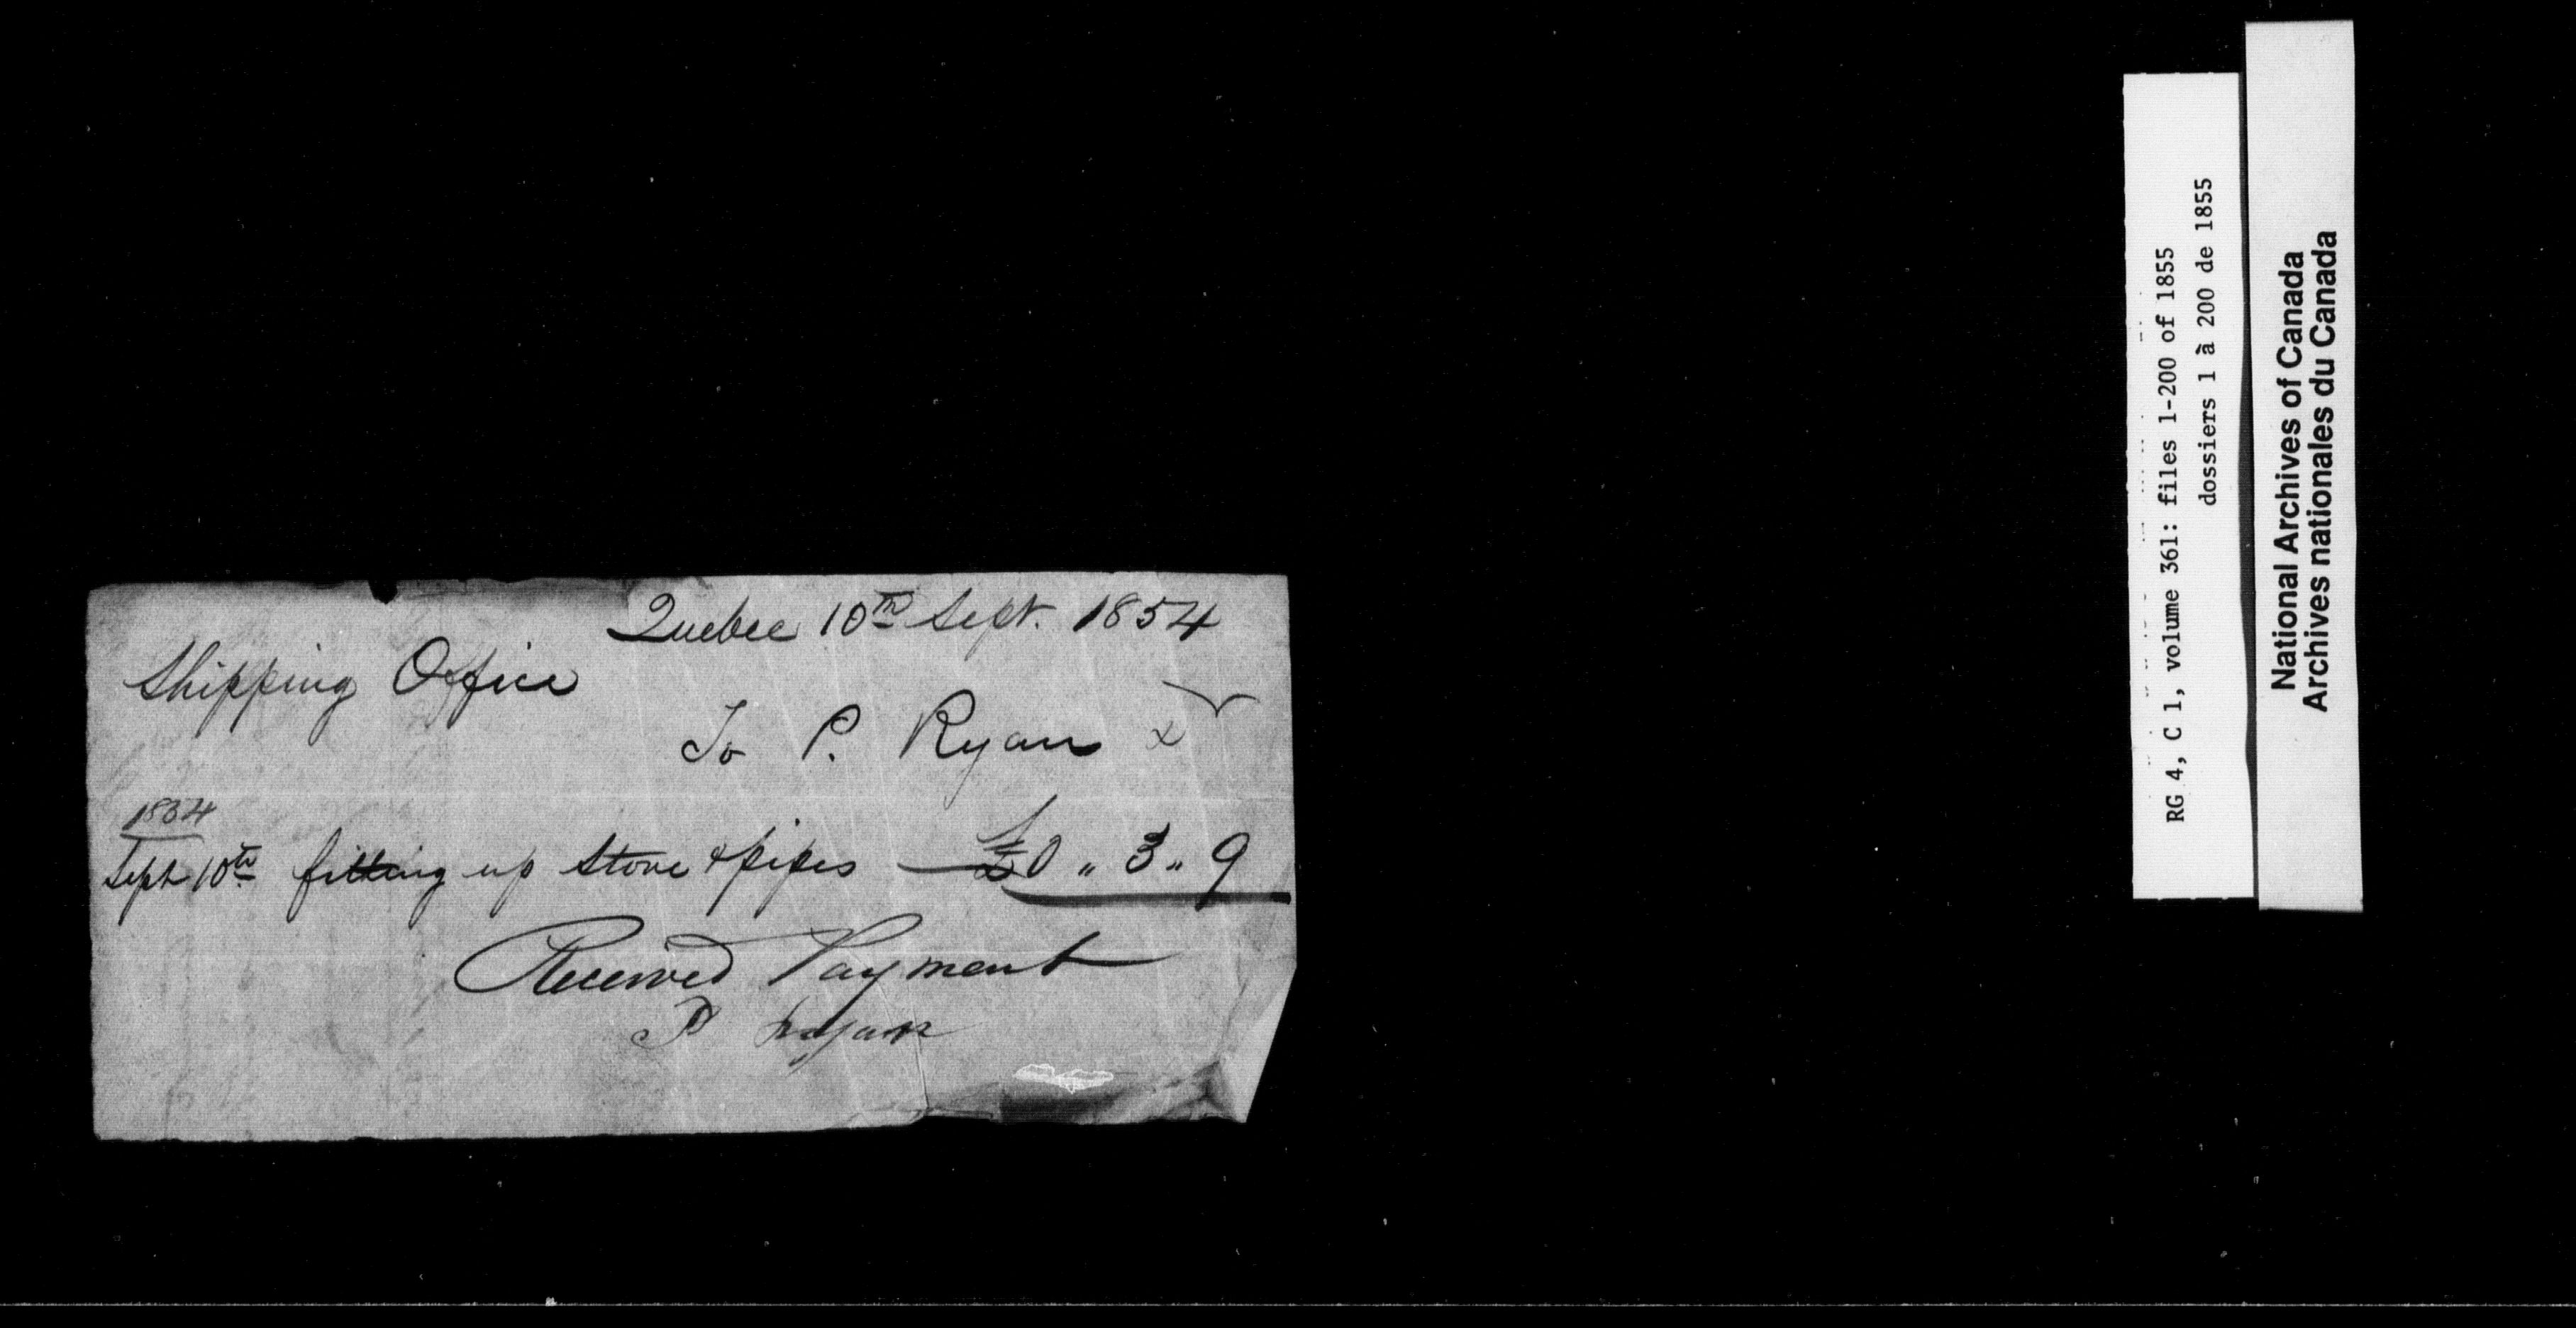 Quebec 10th Sept. 1854
Shipping Office
To P. Ryan x
1854
Sept 10th fitting up stove & pipes £0 " 3 " 9
Received Payment
P Ryan
RG 4, C 1, volume 361: files 1-200 of 1855
dossiers 1 à 200 de 1855
National Archives of Canada
Archives nationales du Canada